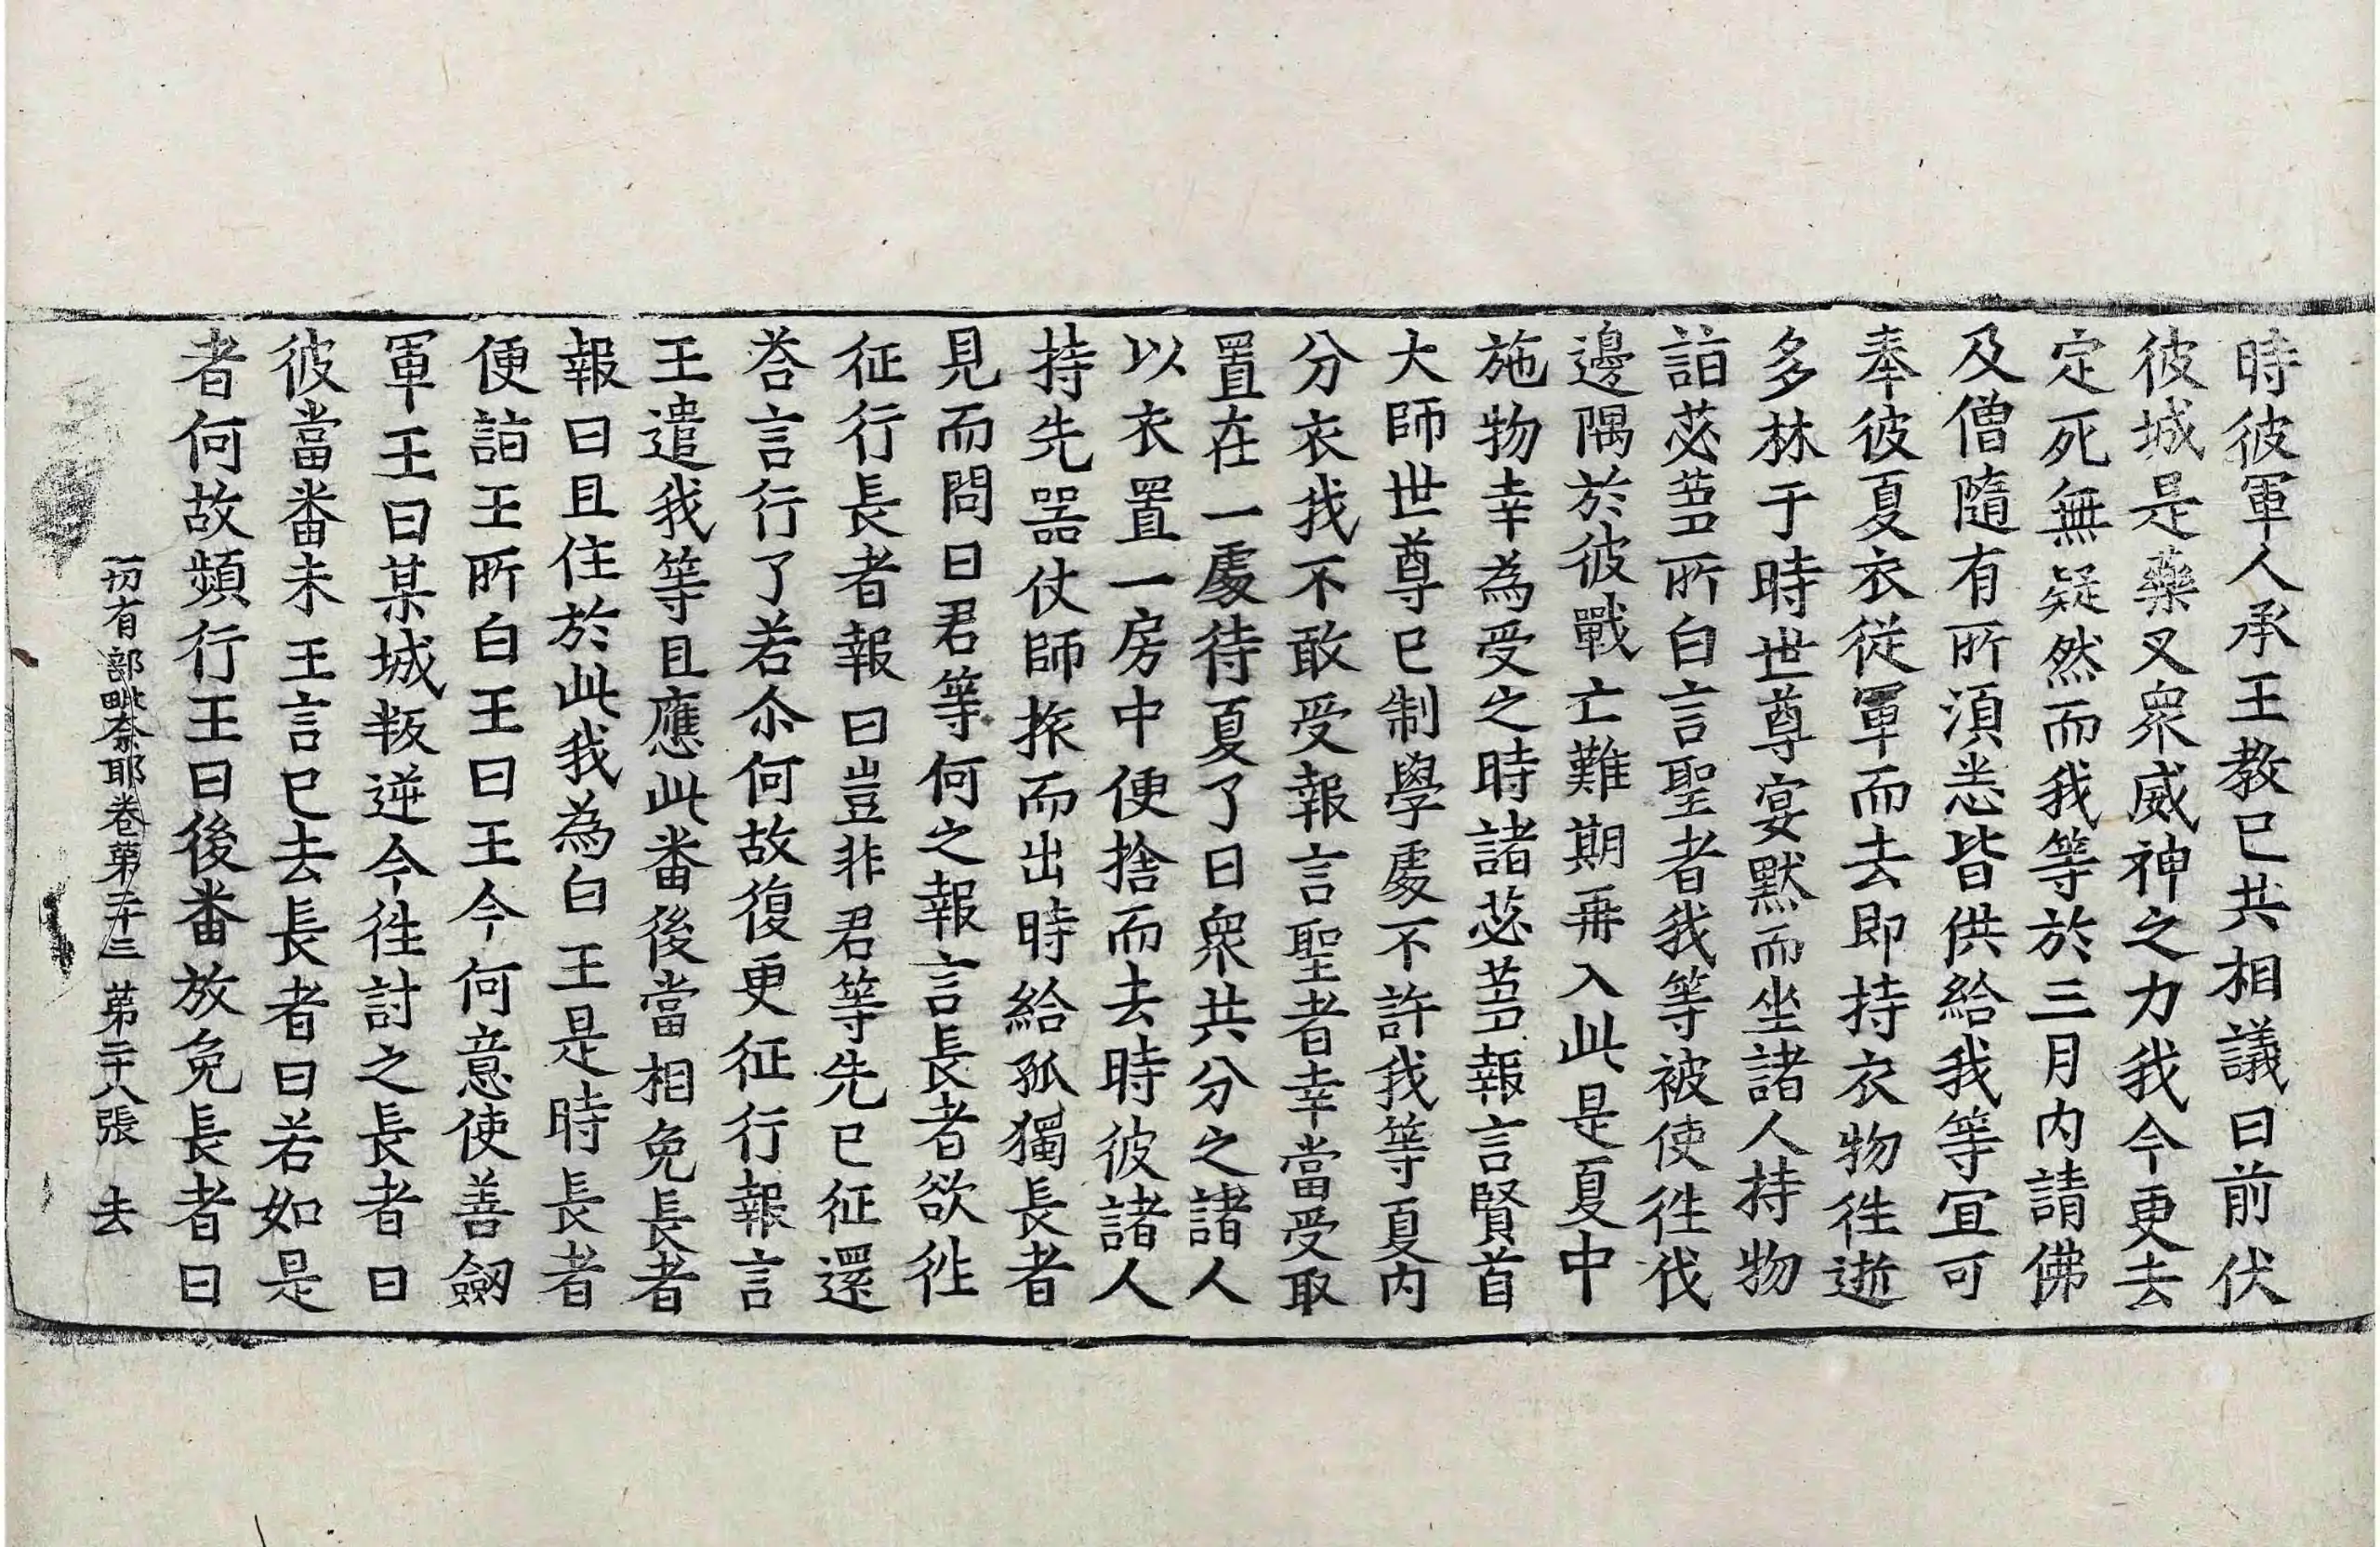 時彼軍人承王教已共相議曰前伏
彼城是藥叉衆威神之力我今更去
定死無疑然而我等於三月内請佛
及僧隨有所湏悉皆供給我等宜可
奉彼夏衣従軍而去即持衣物徃逝
多林于時世尊宴默而坐諸人持物
詣苾蒭所白言聖者我等被使徃伐
邊隅於彼戰亡難期再入此是夏中
施物幸為受之時諸苾蒭報言賢首
大師世尊已制學處不許我等夏内
分衣我不敢受報言聖者幸當受取
置在一處待夏了日衆共分之諸人
以衣置一房中便捨而去時彼諸人
持先器仗師旅而出時給孤獨長者
見而問曰君等何之報言長者欲徃
征行長者報曰豈非君等先已征還
荅言行了若尒何故復更征行報言
王遣我等且應此番後當相免長者
報曰且住於此我為白王是時長者
便詣王所白王曰王今何意使善劒
軍王曰某城叛逆今徃討之長者曰
彼當番未王言已去長者曰若如是
者何故頻行王曰後番放免長者曰
一切有部毗奈耶卷第二十三 第二十八張 去